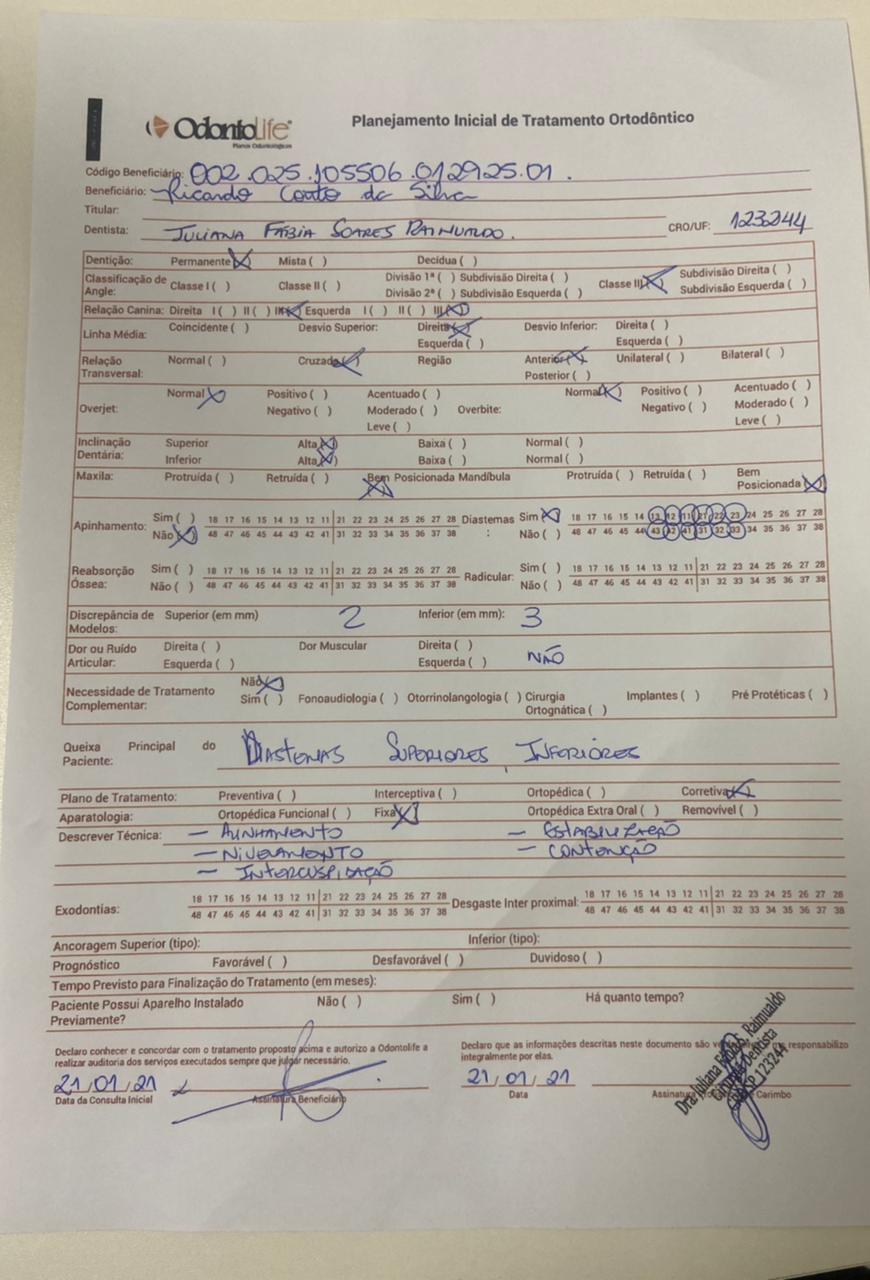 OdontoLife
Planos Odontológicos
Planejamento Inicial de Tratamento Ortodôntico
Código Beneficiário: 002.025.105506.012925.01.
Beneficiário: Ricardo Couto da Silva
Titular:
Dentista: JULIANA FÁBIA SOARES RAIMUALDO. CRO/UF: 123244
Dentição: Permanente (X) Mista ( ) Decídua ( )
Classificação de Angle: Classe I ( ) Classe II ( ) Divisão 1ª ( ) Subdivisão Direita ( ) Classe III (X) Subdivisão Direita ( )
Divisão 2ª ( ) Subdivisão Esquerda ( ) Subdivisão Esquerda ( )
Relação Canina: Direita I ( ) II ( ) III (X) Esquerda I ( ) II ( ) III (X)
Linha Média: Coincidente ( ) Desvio Superior: Direita (X) Desvio Inferior: Direita ( )
Esquerda ( ) Esquerda ( )
Relação Transversal: Normal ( ) Cruzada (X) Região Anterior (X) Unilateral ( ) Bilateral ( )
Posterior ( )
Overjet: Normal (X) Positivo ( ) Acentuado ( ) Overbite: Normal (X) Positivo ( ) Acentuado ( )
Negativo ( ) Moderado ( ) Negativo ( ) Moderado ( )
Leve ( ) Leve ( )
Inclinação Dentária: Superior Alta (X) Baixa ( ) Normal ( )
Inferior Alta (X) Baixa ( ) Normal ( )
Maxila: Protruída ( ) Retruída ( ) Bem Posicionada (X) Mandíbula Protruída ( ) Retruída ( ) Bem Posicionada (X)
Apinhamento: Sim ( ) 18 17 16 15 14 13 12 11 21 22 23 24 25 26 27 28 Diastemas: Sim (X) 18 17 16 15 14 13 12 11 21 22 23 24 25 26 27 28
Não (X) 48 47 46 45 44 43 42 41 31 32 33 34 35 36 37 38 Não ( ) 48 47 46 45 44 43 42 41 31 32 33 34 35 36 37 38
Reabsorção Óssea: Sim ( ) 18 17 16 15 14 13 12 11 21 22 23 24 25 26 27 28 Radicular: Sim ( ) 18 17 16 15 14 13 12 11 21 22 23 24 25 26 27 28
Não ( ) 48 47 46 45 44 43 42 41 31 32 33 34 35 36 37 38 Não ( ) 48 47 46 45 44 43 42 41 31 32 33 34 35 36 37 38
Discrepância de Modelos: Superior (em mm) 2 Inferior (em mm): 3
Dor ou Ruído Articular: Direita ( ) Dor Muscular Direita ( )
Esquerda ( ) Esquerda ( ) NÃO
Necessidade de Tratamento Complementar: Não (X)
Sim ( ) Fonoaudiologia ( ) Otorrinolangologia ( ) Cirurgia Ortognática ( ) Implantes ( ) Pré Protéticas ( )
Queixa Principal do Paciente: DIASTEMAS SUPERIORES, INFERIORES
Plano de Tratamento: Preventiva ( ) Interceptiva ( ) Ortopédica ( ) Corretiva (X)
Aparatologia: Ortopédica Funcional ( ) Fixa (X) Ortopédica Extra Oral ( ) Removível ( )
Descrever Técnica: - ALINHAMENTO - ESTABILIZAÇÃO
- NIVELAMENTO - CONTENÇÃO
- INTERCUSPIDAÇÃO
Exodontias: 18 17 16 15 14 13 12 11 21 22 23 24 25 26 27 28 Desgaste Inter proximal: 18 17 16 15 14 13 12 11 21 22 23 24 25 26 27 28
48 47 46 45 44 43 42 41 31 32 33 34 35 36 37 38 48 47 46 45 44 43 42 41 31 32 33 34 35 36 37 38
Ancoragem Superior (tipo): Inferior (tipo):
Prognóstico Favorável ( ) Desfavorável ( ) Duvidoso ( )
Tempo Previsto para Finalização do Tratamento (em meses):
Paciente Possui Aparelho Instalado Previamente? Não ( ) Sim ( ) Há quanto tempo?
Declaro conhecer e concordar com o tratamento proposto acima e autorizo a Odontolife a
realizar auditoria dos serviços executados sempre que julgar necessário.
Declaro que as informações descritas neste documento são me responsabilizo
integralmente por elas.
21/01/21
Data da Consulta Inicial Assinatura Beneficiário
21/01/21
Data Assinatura Carimbo
Dra. Juliana Fábia S. Raimualdo
Cirurgiã Dentista
CROSP 123244